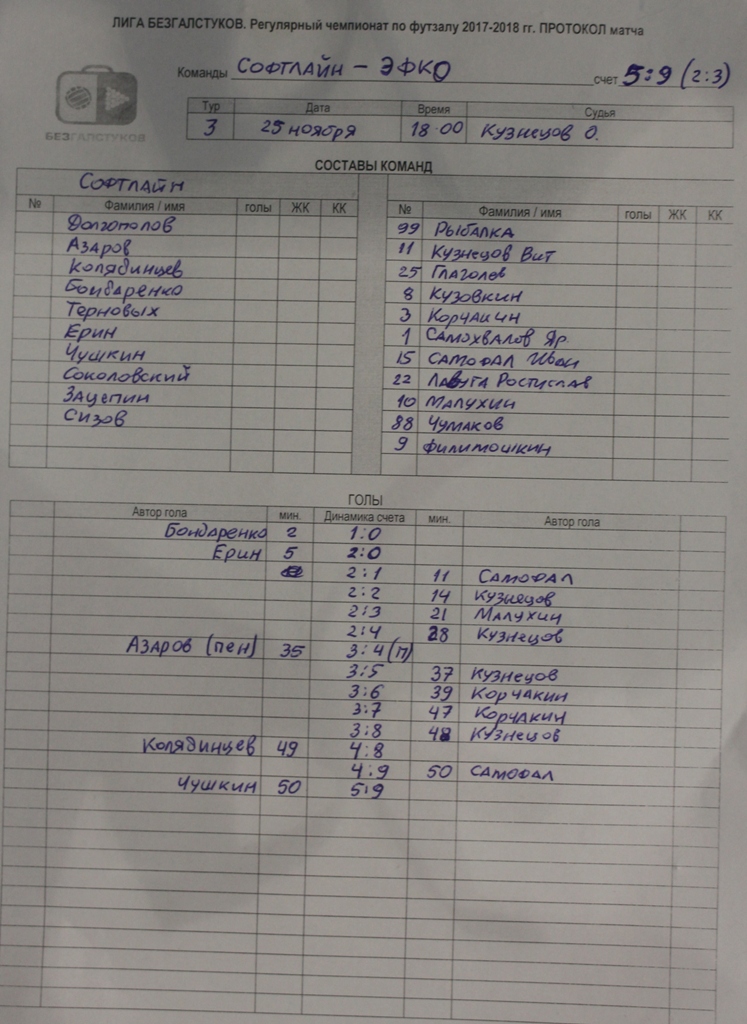 ЛИГА БЕЗГАЛСТУКОВ. Регулярный чемпионат по футзалу 2017-2018 гг. ПРОТОКОЛ матча
Команды СОФТЛАЙН – ЭФКО счет 5:9 (2:3)
БЕЗГАЛСТУКОВ
Тур Дата Время Судья
3 25 ноября 18·00 Кузнецов О.
СОСТАВЫ КОМАНД
СОФТЛАЙН
№ Фамилия / имя голы ЖК КК № Фамилия / имя голы ЖК КК
Долгополов 99 Рыбалка
Азаров 11 Кузнецов Вит
Колядинцев 25 Глаголев
Бондаренко 8 Кузовкин
Терновых 3 Корчакин
Ерин 1 Самохвалов Яр.
Чушкин 15 Самофал Иван
Соколовский 22 Лавута Ростислав
Зацепин 10 Малухин
Сизов 88 Чумаков
9 Филимошкин
ГОЛЫ
Автор гола мин. Динамика счета мин. Автор гола
Бондаренко 2 1:0
Ерин 5 2:0
2:1 11 Самофал
2:2 14 Кузнецов
2:3 21 Малухин
2:4 28 Кузнецов
Азаров (пен) 35 3:4 (П)
3:5 37 Кузнецов
3:6 39 Корчакин
3:7 47 Корчакин
3:8 48 Кузнецов
Колядинцев 49 4:8
4:9 50 Самофал
Чушкин 50 5:9